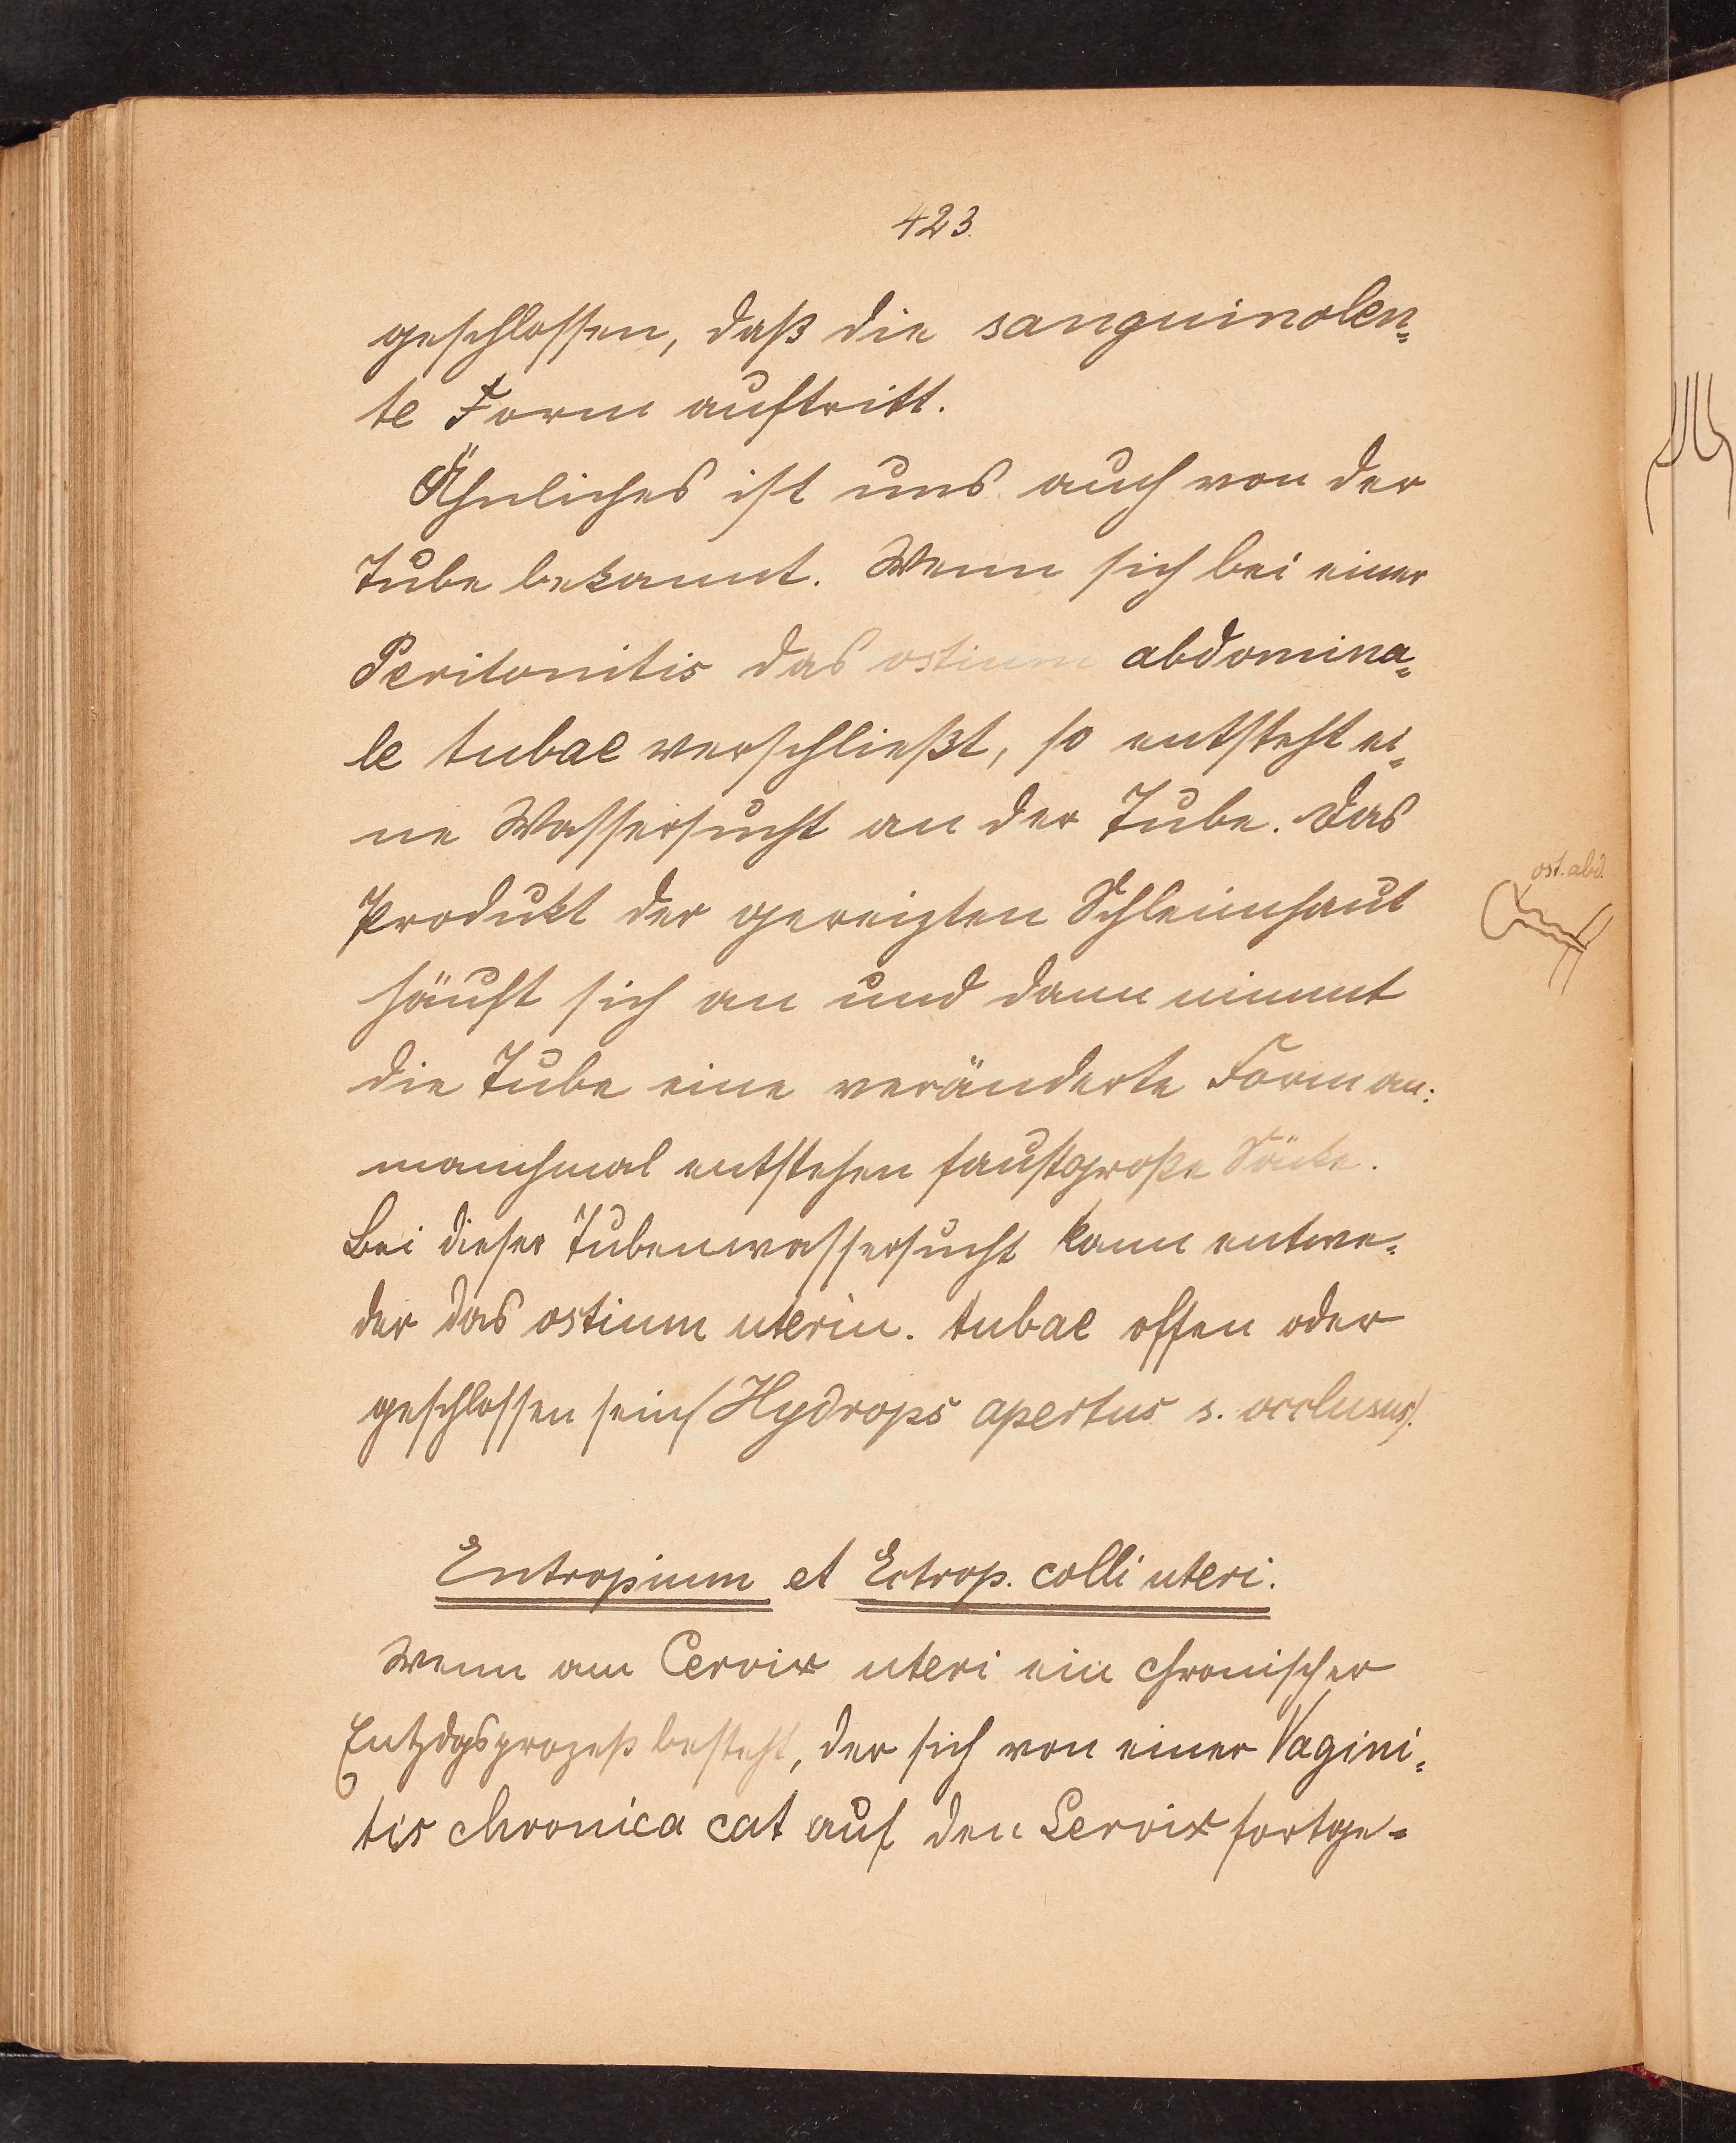 423.
geschlossen, daß die sanguinolen=
te Form auftritt.
Ähnliches ist uns auch von der
Tube bekannt. Wenn sich bei einer
Peritonitis das ostium abdomina=
le tubae verschließt, so entsteht ei=
ne Wassersucht an der Tube. Das
Produkt der gereizten Schleimhaut
ost. abd.
häuft sich an und dann nimmt
die Tube eine veränderte Form an:
manchmal entstehen faustgroße Säcke.
Bei dieser Tubenwassersucht kann entwe=
der das ostium uterin. tubae offen oder
geschlossen sein (Hydrops apertus s. occlusus).
Entropium et Ectrop. colli uteri.
Wenn am Cervix uteri ein chronischer
Entzdgsprozeß besteht, der sich von einer Vagini=
tis chronica cat auf den Cervix fortge=